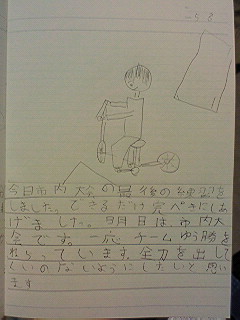 今日市内大会の最後の練習を
しました。できるだけ完ペキにしあ
げました。明日は市内大
会です。一応チームゆう勝を
ねらっています。全力を出して
くいのないようにしたいと思い
ます